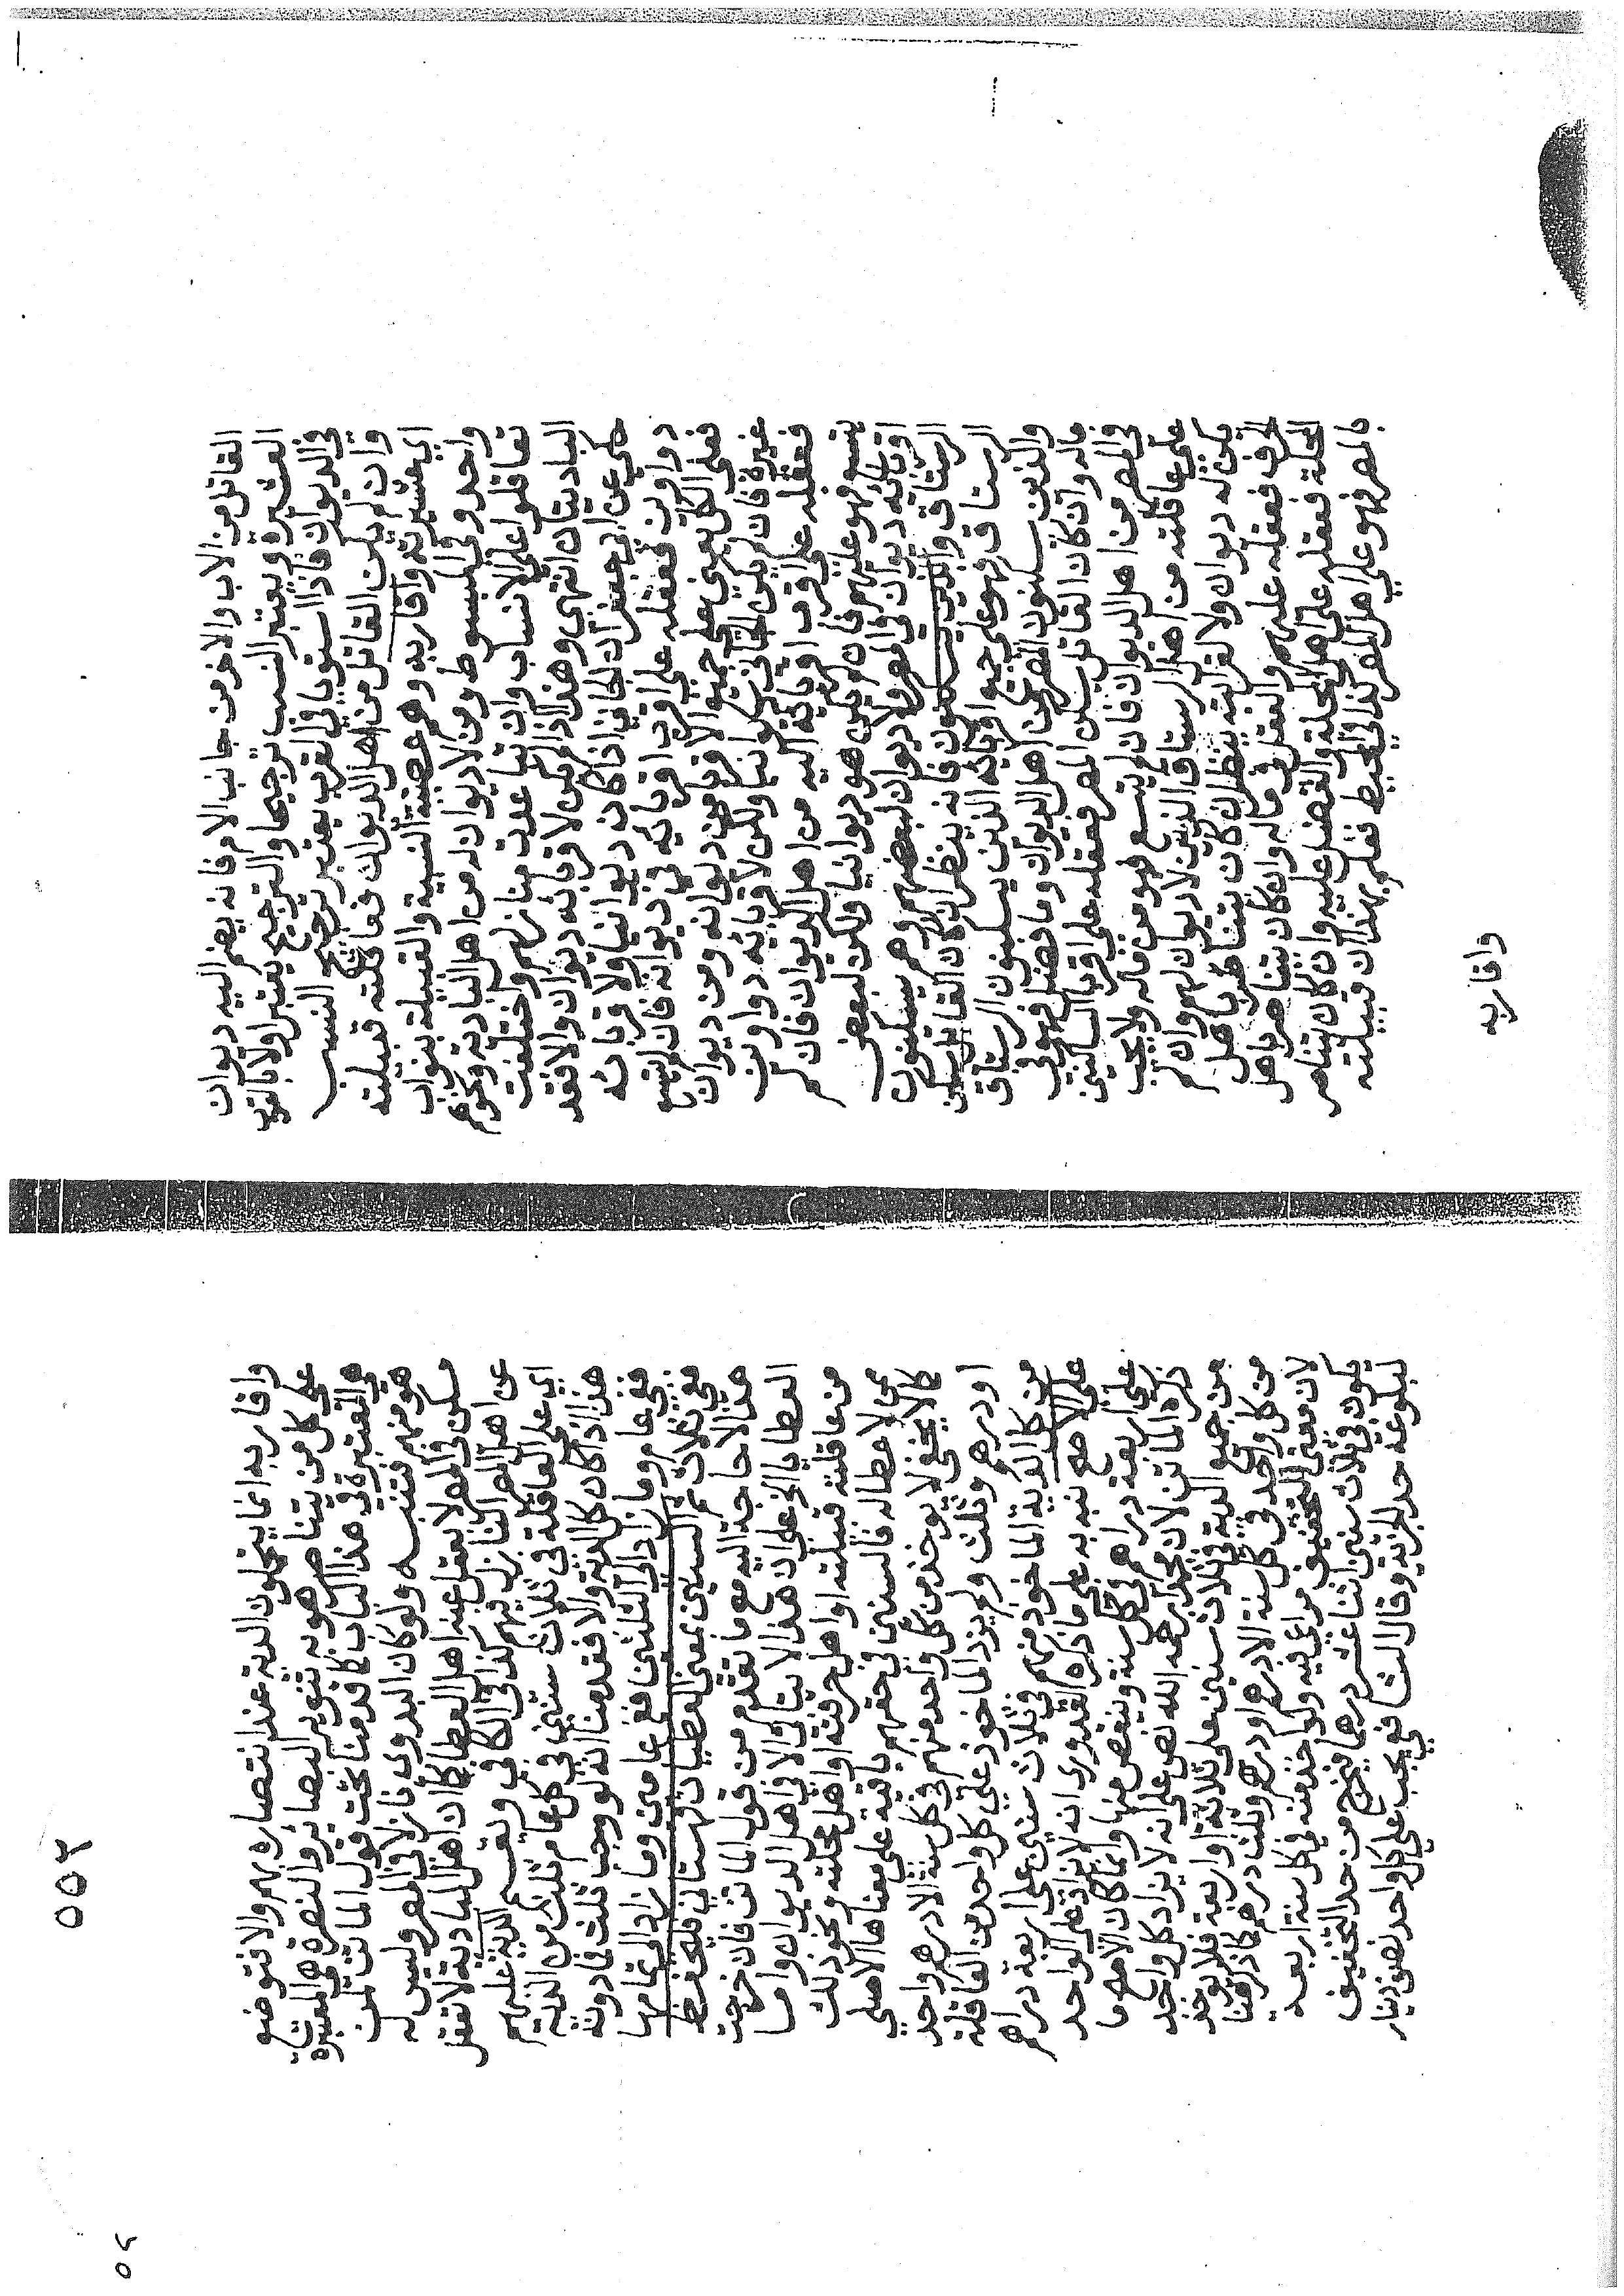 القاتل من الاب والاخر من جانب الام فانه يضم اليه ديوان
العشيرة ويعتبر النسب ترجيحا والترجيح يعتبر اولا بالقرب
في الديوان فاذا استويا في القرب يعتبر ترجيح النسب
وان لم يكن القاتل من اهل الديوان فعاقلته قبيلته
اي عشيرته واقاربه وهم عصبته النسبية والقبيلة بنواب
واحد وفي المبسوط ومن لا ديوان له من اهل البادية ونحوهم
تعاقلوا على الانساب وان تباعدت منازلهم واختلفت
الباديتان انتهى وهذا اذا لم يكن لاقربائه ديوان والا فقد
حكي عن ابي جعفر ان الجاني اذا كان ديوانيا ولا قربائه
دواوين فعقله على اقرب اقربائه في ديوانه فان لم يتسع
فعلى الكل يعني على جميع الاقربا من ديوانه ومن ديوان
غيره فان لم يكن الجاني ديوانيا ولكن لاقربائه دواوين
فعقله على اقرب اقربائه اليه من اهل الديوان فان لم
يتسع فهو عليهم فان لم يكن هو ديوانيا ولكن لبعض
اقربائه ديوان في المصر ولا ديوان لبعضهم وهم يسكنون
الرستاق والذين يسكنون فانه ينظر ان كان القاتل يسكن
الرستاق فهو على جميع اقربائه الذين يسكنون الرستاق
والذين يسكنون المصر من اهل الديوان وما فضل فهو في
ماله وان كان القاتل يسكن المصر فعقله على اقربا الساكنين
في المصر من اهل الديوان فان لم يتسع فهو من ماله ولا يجب
على عاقلته من اهل الرستاق الذين لا ديوان لهم وان لم
يكن له ديوان ولا لقرابته ينظر ان كان يتناصر باهل
الحرف فعقله عليهم والفضل في ماله وان كان يتناصر باهل
المحلة فعقله على اهل المحلة والفضل عليه وان كان يتناصر
بالمصر فهو على اهل المصر كذا في المحيط فعلم بهذا ان قبيلته
واقاربه
واقاربه انما يتحملون الدية عند انتصاره بهم والا فتوضع
على كل من يتناصر هو به تنوير البصائر والنصرة هي المعتبرة
هي المعتبرة في هذا الباب كما قدمنا تحت قول الماتن لمن
هو منهم فتنبه ولو كان البدوي نازلا في المصر وليس له
مسكن في المصر لا يعقل عنه اهل العطا كما ان اهل البادية لا تعقل
عن اهل المصر النازل فيهم كذا في الكافي ويقسم الدية عليهم
اي على العاقلة في ثلاث سنين في كل عام ثلث من الدية
هذا اذا كان كل الدية والا فقدمنا انه لو وجب ثلث فما دونه
ففي عام وما زاد الى الثلثين ففي عامين وما زاد الى تمامها
ففي ثلاث ثم السنين بمعنى العطيات قهستاني فليحفظ
هذا لا حاجة اليه مع ما تقدم من قول الماتن فان خرجت
العطايا الخ على ان هذا لا يتاتى الا في اهل الديوان واما
من عاقلته قبيلته او اهل حرفته او اهل محلته ونحو ذلك
ممن لا عطا له فالسنين في حقهم باقية على معناها الاصلي
كما لا يخفى لا يوخذ من كل واحد منهم في كل سنة الا درهم واحد
او درهم وثلث ولم يزد الماخوذ على كل واحد من العاقلة
من كل الدية الماخوذ منهم في ثلاث سنين على اربعة دراهم
على الاصح نبه به على ما ذكره القدوري انه لا يزاد على الواحد
على اربعة دراهم في كل سنة وينقص منها وانما كان الاصح ما
ذكره الماتن لان محمدا رحمه الله نص على انه لا يزاد كل واحد
من جميع الدية في ثلاث سنين على ثلاثة او اربعة فلا يوخذ
من كل واحد في كل سنة الا درهم او درهم وثلث درهم كما ذكرهنا
لان معنى التخفيف مراعى فيه ولو اخذ منه في كل سنة اربعة
يكون في ثلاث سنين اثنا عشر درهما فيخرج من حد التخفيف
لبلوغه حد الجزية وقال الشافعي يجب على كل واحد نصف دينار
٥٥٢
٥٤